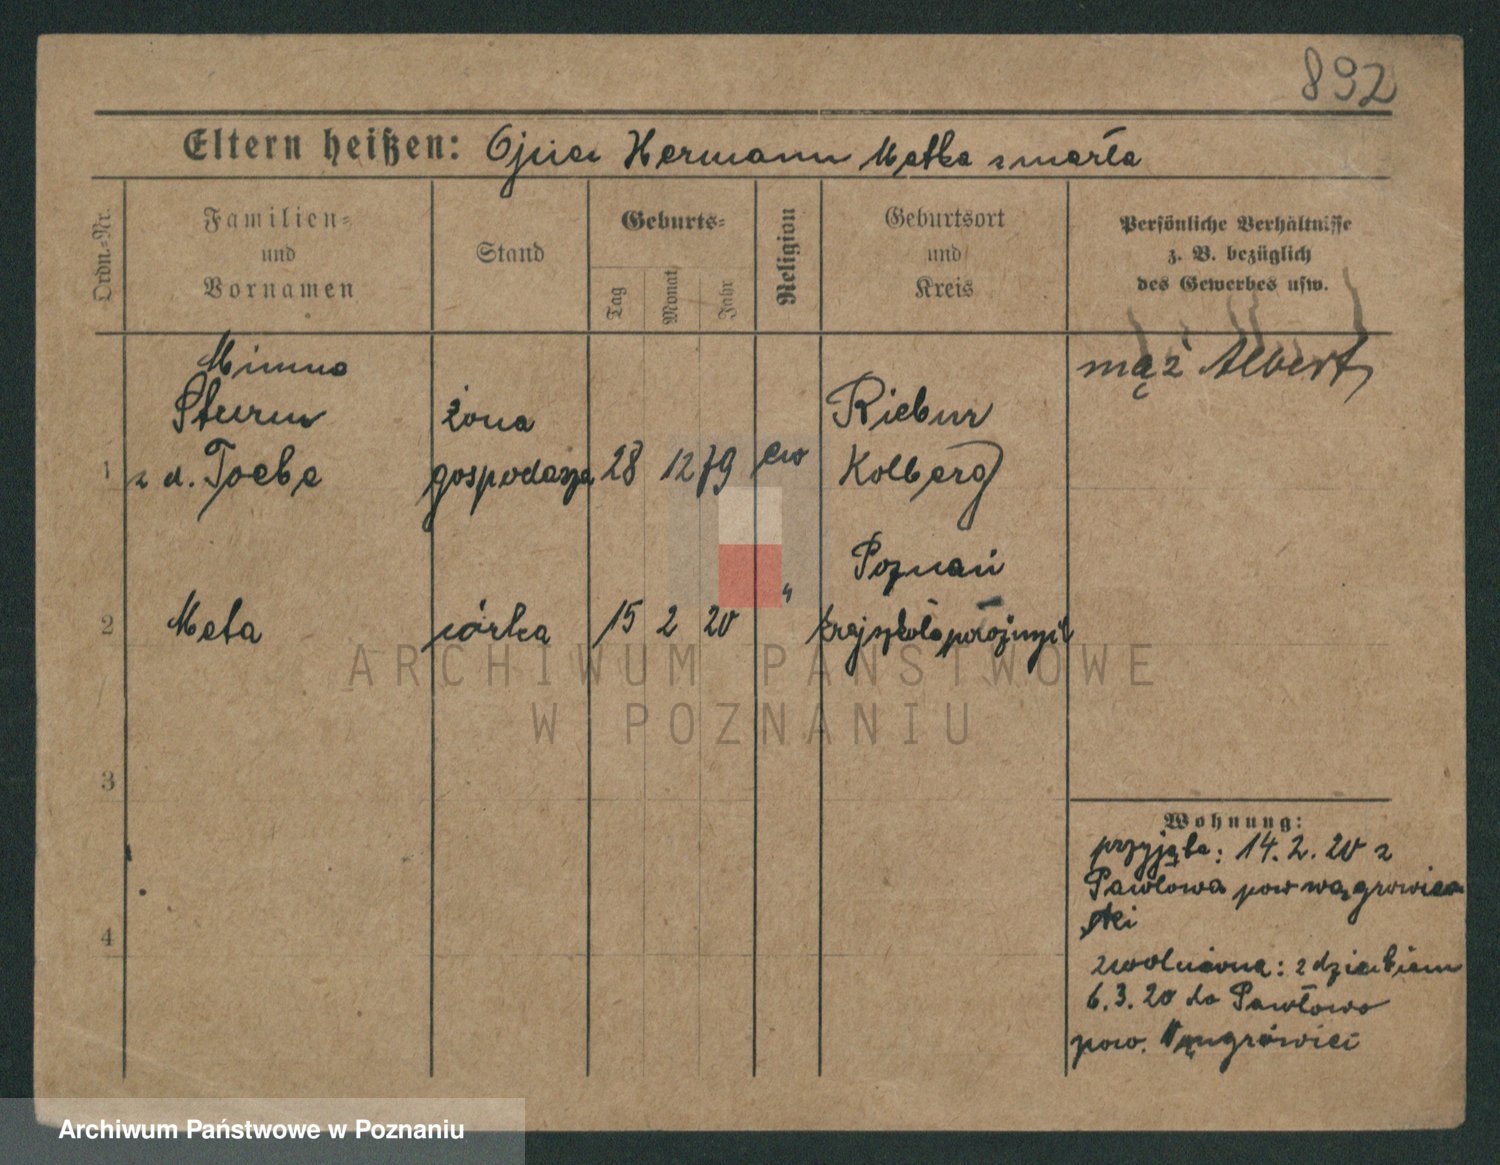 892
Eltern heißen: Ojciec Hermann Matka zmarła
Ordn.-Nr.
Familien-
und
Vornamen
Stand
Geburts-
Tag
Monat
Jahr
Religion
Geburtsort
und
Kreis
Persönliche Verhältnisse
z. B. bezüglich
des Gewerbes usw.
Minna
Sturm
z d. Toebe
1
żona
gospodarza
28 12 79
ew
Riebur
Kolberg
mąż Albert
2
Meta
córka
15 2 20
"
Poznań
kraj. szkoła położnych
3
4
Wohnung:
przyjęta: 14. 2. 20 z
Pawłowa pow wągrowiec
ki
zwolniona: z dzieckiem
6. 3. 20 do Pawłowo
pow. Wągrówiec
ARCHIWUM PAŃSTWOWE
W POZNANIU
Archiwum Państwowe w Poznaniu